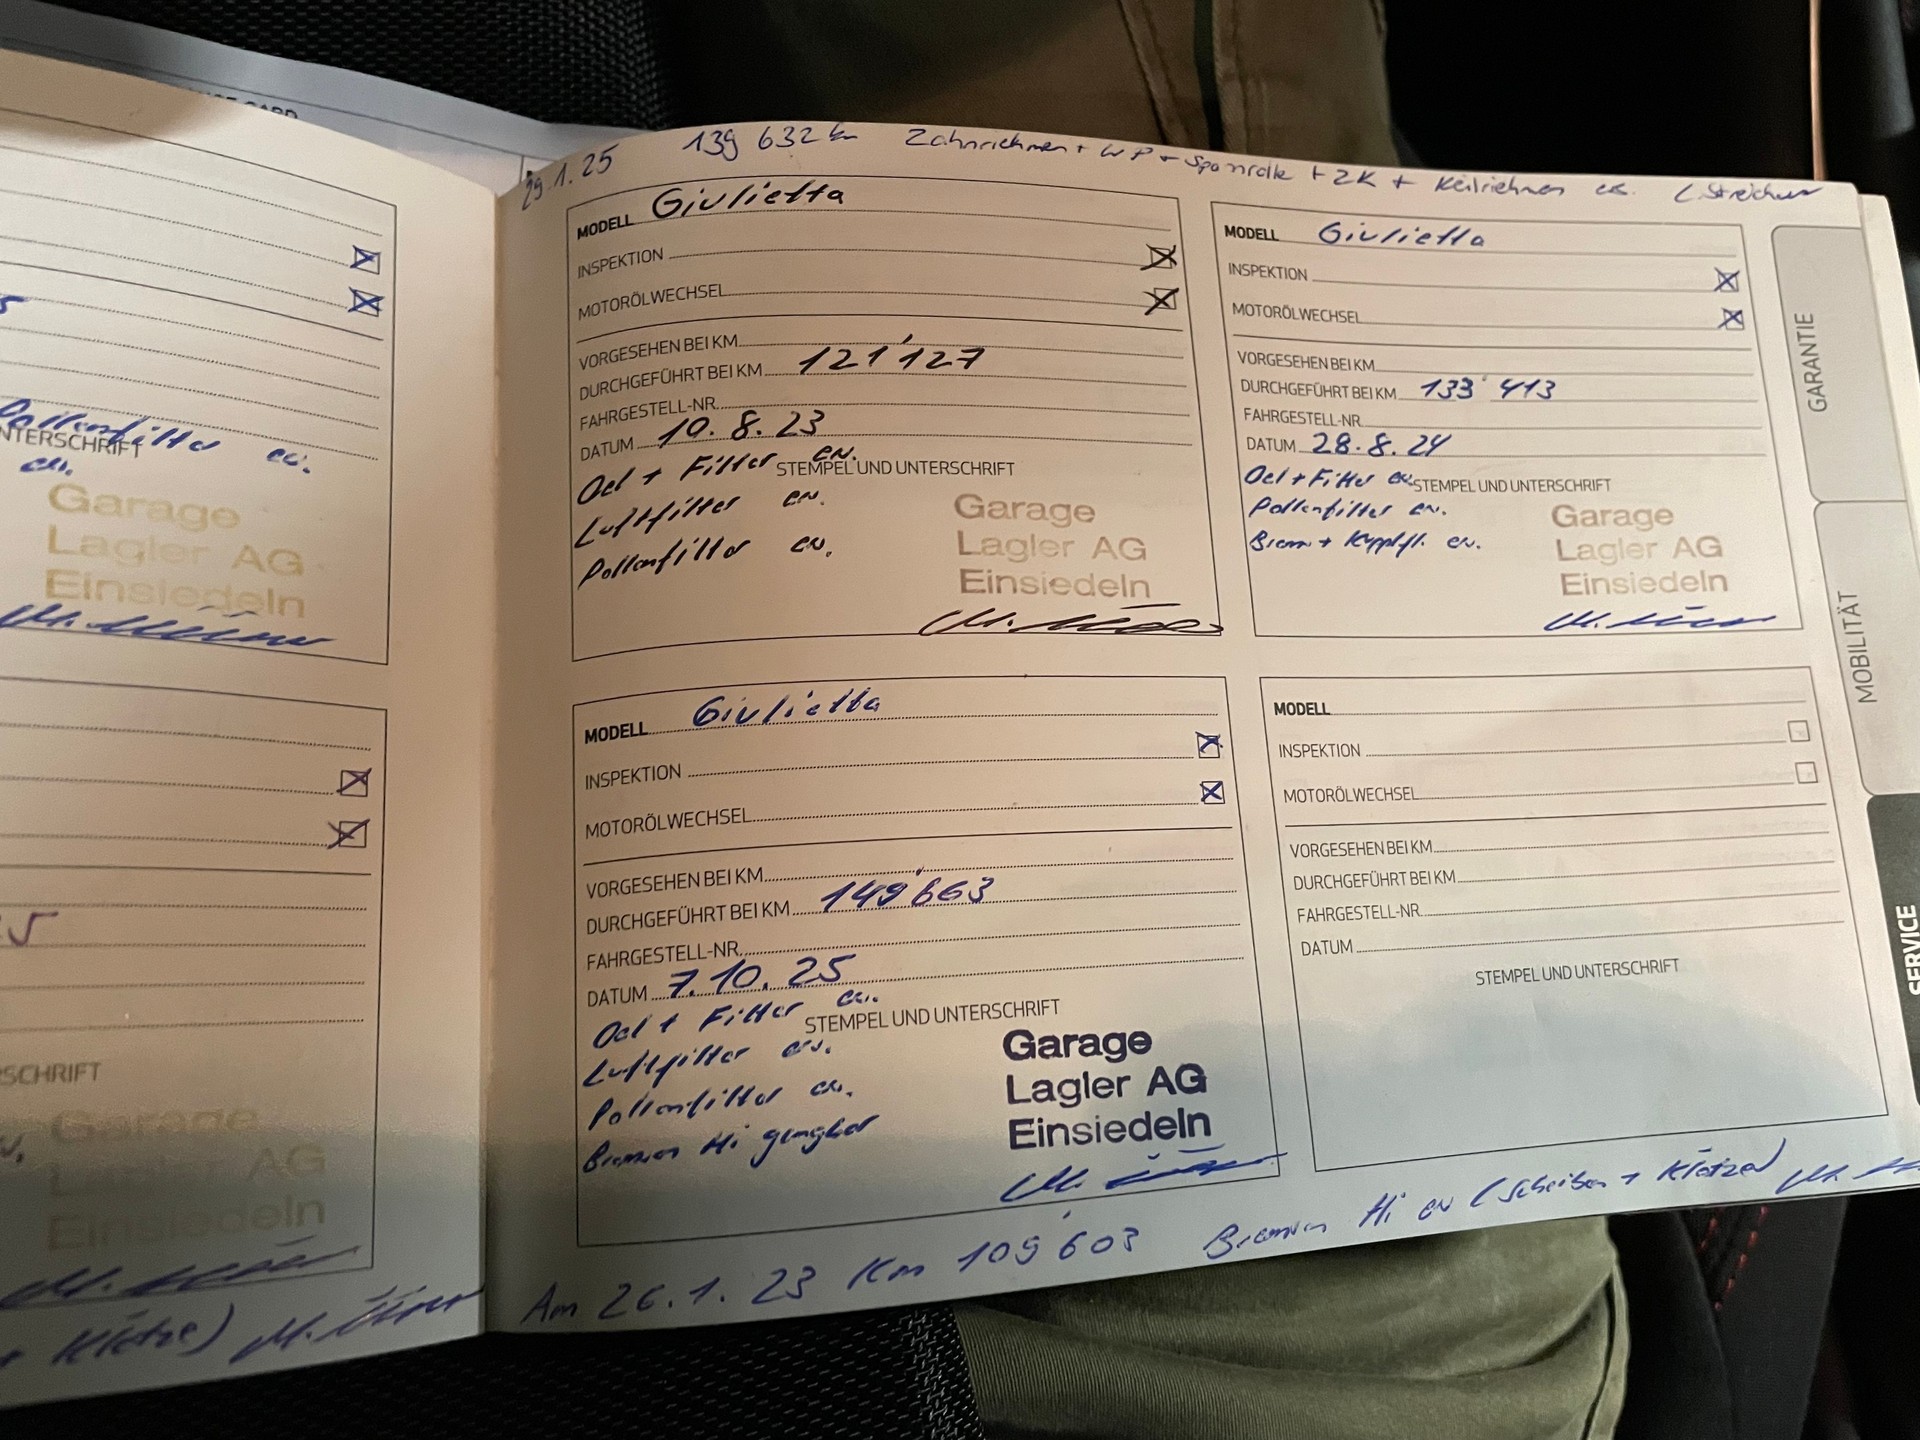 29.1.25 139 632 km Zahnriemen + WP + Spannrolle + ZK + Keilriemen en.
MODELL Giulietta
INSPEKTION
MOTORÖLWECHSEL
VORGESEHEN BEI KM
DURCHGEFÜHRT BEI KM 121'127
FAHRGESTELL-NR.
DATUM 10.8.23
Oel + Filter en.
STEMPEL UND UNTERSCHRIFT
Luftfilter en.
Pollenfilter en.
Garage
Lagler AG
Einsiedeln
MODELL Giulietta
INSPEKTION
MOTORÖLWECHSEL
VORGESEHEN BEI KM
DURCHGEFÜHRT BEI KM 133'413
FAHRGESTELL-NR.
DATUM 28.8.24
Oel + Filter en.
STEMPEL UND UNTERSCHRIFT
Pollenfilter en.
Brems + Kupplfl. en.
Garage
Lagler AG
Einsiedeln
MODELL Giulietta
INSPEKTION
MOTORÖLWECHSEL
VORGESEHEN BEI KM
DURCHGEFÜHRT BEI KM 149'663
FAHRGESTELL-NR.
DATUM 7.10.25
Oel + Filter en.
STEMPEL UND UNTERSCHRIFT
Luftfilter en.
Pollenfilter en.
Bremsen Hi gangbar
Garage
Lagler AG
Einsiedeln
MODELL
INSPEKTION
MOTORÖLWECHSEL
VORGESEHEN BEI KM
DURCHGEFÜHRT BEI KM
FAHRGESTELL-NR.
DATUM
STEMPEL UND UNTERSCHRIFT
Am 26.1.23 Km 109'603 Bremsen Hi en (Scheiben + Klötze)
GARANTIE
MOBILITÄT
SERVICE
Pollenfilter en.
NTERSCHRIFT
en.
Garage
Lagler AG
Einsiedeln
RSCHRIFT
Garage
Lagler AG
Einsiedeln
+ Klötze)